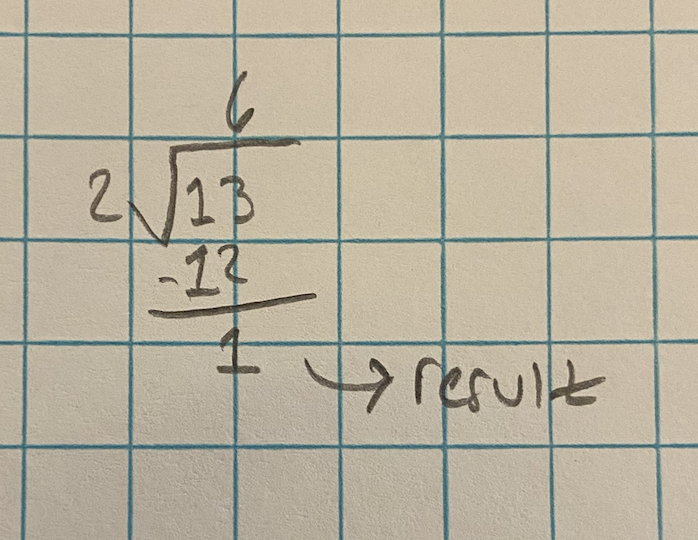 6
2√13
-12
1
→ result